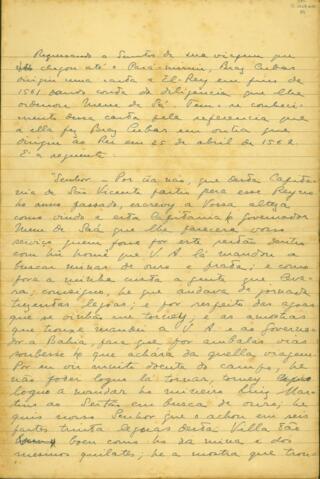 Regressando a Santos de uma viagem que
chegou até o Pará-mirim, Braz Cubas
dirigiu uma carta a El-Rey em fins de
1561 dando conta da diligencia que lhe
ordenou Mem de Sá. Tem-se conheci-
mento dessa carta pela referencia que
a ella fez Braz Cubas em outra que
dirigiu ao Rei em 25 de abril de 1562.
É a seguinte
"Senhor — Por ũa não, que desta Capita-
nia de São Vicente partiu pera esse Reyno
ho anno passado, escrevy a Vossa alteza
como vindo a esta Capitania o Governador
Mem de Saá que lhe parecera vosso
serviço quem fosse por este sertão dentro
com hũ home que V. A. lá mandou a
buscar minas de ouro e prata; e como
fora a minha custa a gente que leva-
ra; consigno, he que andava de jornada
trezentas legoas; e por respeito das agoas
que se vinhão me torney; e as amostras
que trouxe mandei a V. A. e ao Governa-
dor a Bahia, para que por ambalas vias
soubesse o que achara da quella viagem.
Por eu vir muito doente do campo, he
não poder logo lá tornar, torney
logo a mandar ho mineiro Luiz Mar-
tins ao Sertão em busca de ouro; he
quis nosso Senhor que o achou em seis
partes trinta legoas desta Villa tão
boen como ho da mina e dos
mesmos quilates; he a mostra que trou-